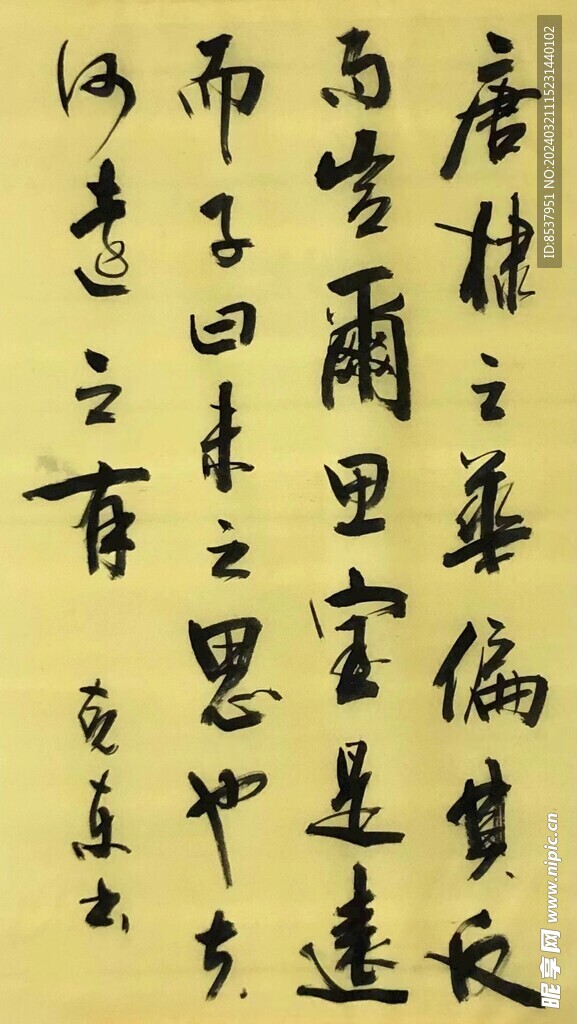 唐棣之華偏其反
而豈爾思室是遠
而子曰未之思也夫
何遠之有
克東书
ID:8537951 NO:20240321115231440102
昵享网 www.nipic.cn